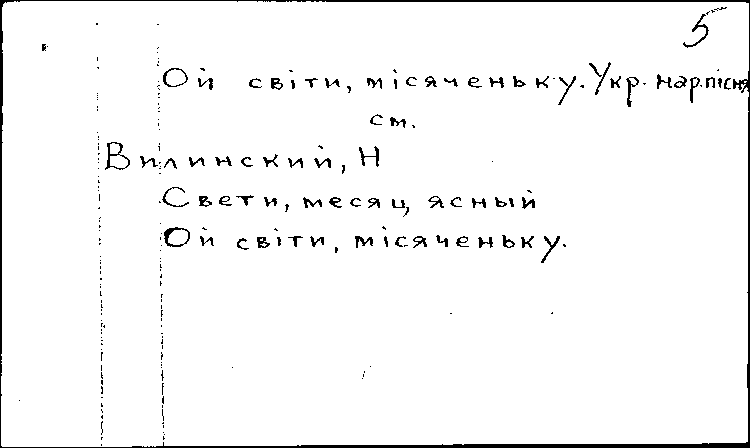 5
Ой світи, місяченьку. Укр. нар. пісня
см.
Вилинский, Н
Свети, месяц, ясный
Ой світи, місяченьку.